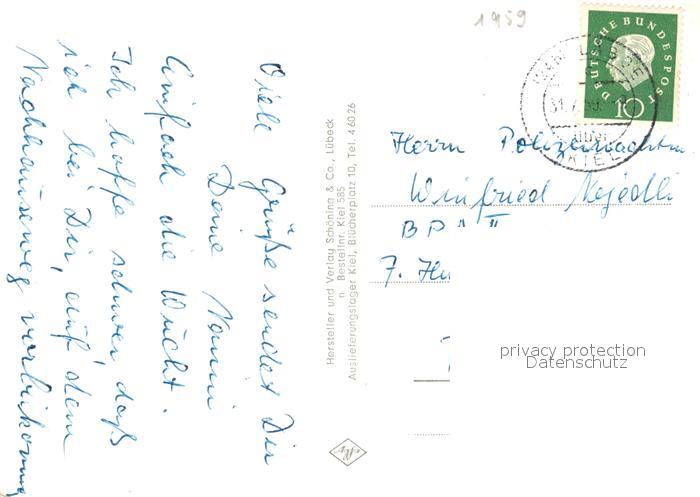 1959
DEUTSCHE BUNDESPOST
10
31.7.59
über
KIEL
Viele Grüße sendet Dir
Deine
Einfach die Wucht.
Ich hoffe schwer, daß
ich bei Dir, auf dem
Nachhauseweg
Hersteller und Verlag Schöning & Co., Lübeck
n Bestellnr. Kiel 585
Auslieferungslager Kiel, Blücherplatz 10, Tel. 4 60 26
Herrn Polizeiwachtm.
Winfried Nejedli
BP
7.
privacy protection
Datenschutz